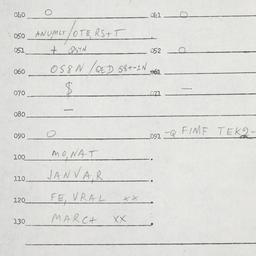 040 O 041 O
050 ANUMLT/OTERS+T
051 + QSYN 052 O
060 058N / QED 58+-1N 061
070 $ 071 —
080 —
090 O 091 -Q FIMF TEK2-
100 MO,NAT .
110 JANVA,R .
120 FE,VRAL XX .
130 MARC+ XX .